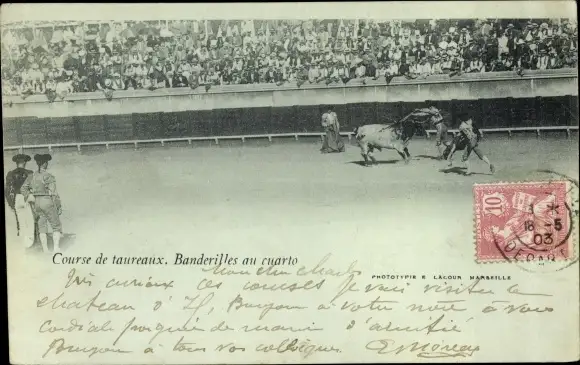 10
18 -5
03
Course de taureaux. Banderilles au cuarto
PHOTOTYPIE E. LACOUR MARSEILLE
Mon cher Charles
Très curieux ces courses je vais visiter le
chateau d'If, Bonjour à votre
cordiale poignée de main d'amitié
Bonjour à tous vos collègues